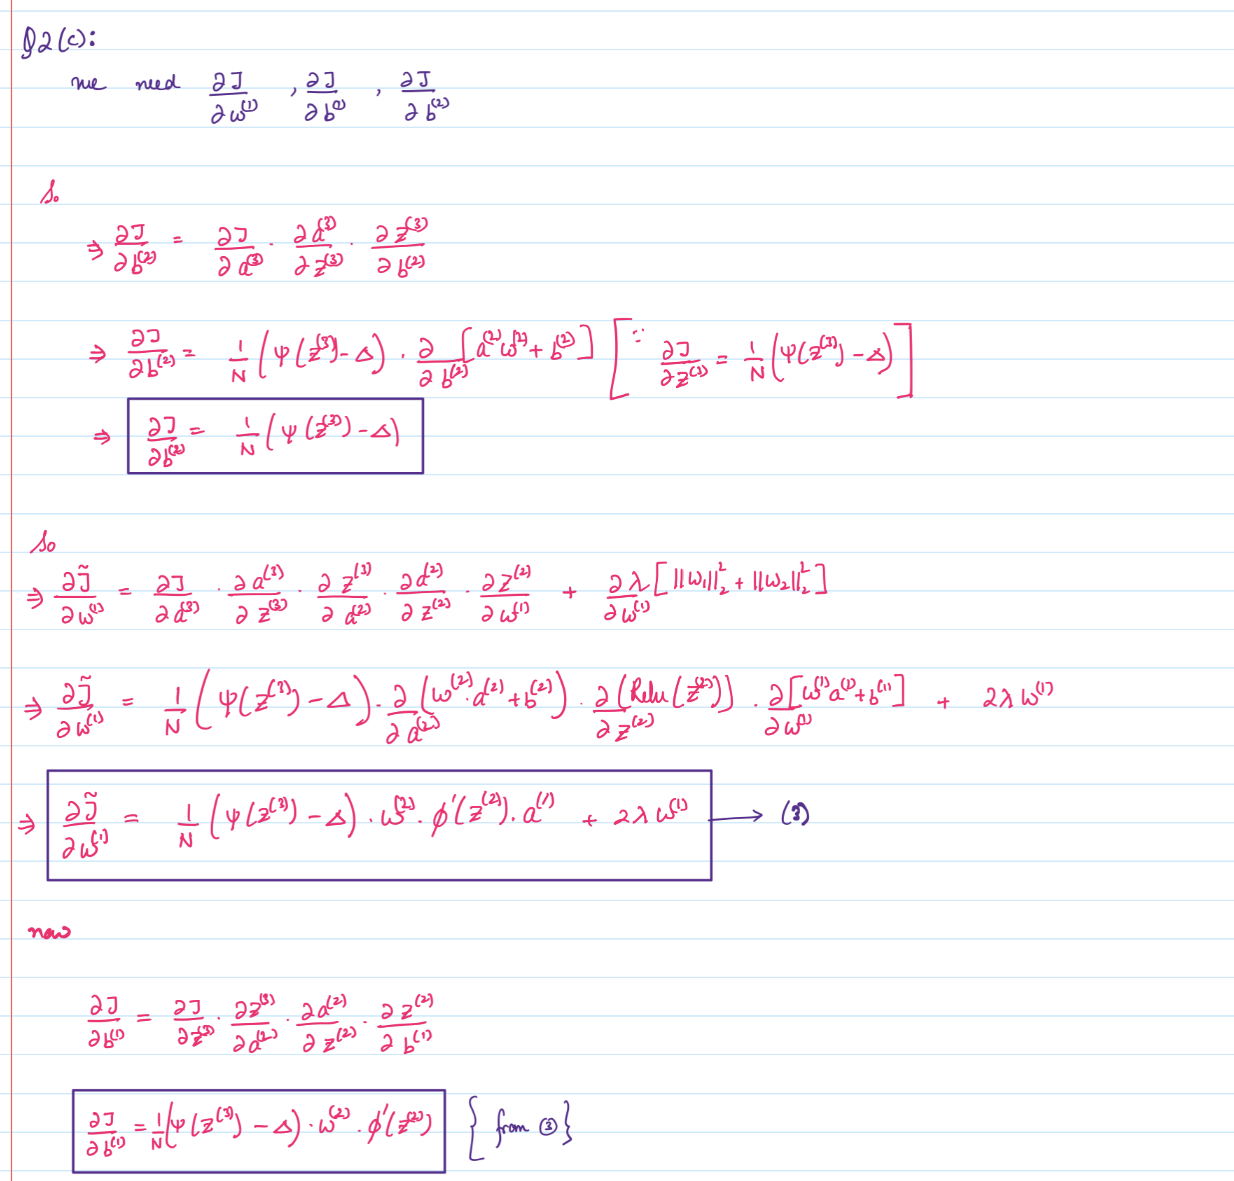 Q2(c):
we need ∂J/∂w^(1) , ∂J/∂b^(1) , ∂J/∂b^(2)
So
⇒ ∂J/∂b^(2) = ∂J/∂a^(3) · ∂a^(3)/∂z^(3) · ∂z^(3)/∂b^(2)
⇒ ∂J/∂b^(2) = 1/N (ψ(z^(3)) - Δ) · ∂/∂b^(2) [a^(2) w^(2) + b^(2)] [∵ ∂J/∂z^(3) = 1/N (ψ(z^(3)) - Δ)]
⇒ ∂J/∂b^(2) = 1/N (ψ(z^(3)) - Δ)
So
⇒ ∂J̃/∂w^(1) = ∂J/∂a^(3) · ∂a^(3)/∂z^(3) · ∂z^(3)/∂a^(2) · ∂a^(2)/∂z^(2) · ∂z^(2)/∂w^(1) + ∂λ/∂w^(1) [||w₁||₂² + ||w₂||₂²]
⇒ ∂J̃/∂w^(1) = 1/N (ψ(z^(3)) - Δ) · ∂/∂a^(2) (w^(2) · a^(2) + b^(2)) · ∂/∂z^(2) (Relu(z^(2))) · ∂/∂w^(1) [w^(1) a^(1) + b^(1)] + 2λw^(1)
⇒ ∂J̃/∂w^(1) = 1/N (ψ(z^(3)) - Δ) · w^(2) · ϕ'(z^(2)) · a^(1) + 2λw^(1) → (3)
now
∂J/∂b^(1) = ∂J/∂z^(3) · ∂z^(3)/∂a^(2) · ∂a^(2)/∂z^(2) · ∂z^(2)/∂b^(1)
∂J/∂b^(1) = 1/N (ψ(z^(3)) - Δ) · w^(2) · ϕ'(z^(2)) {from ③}